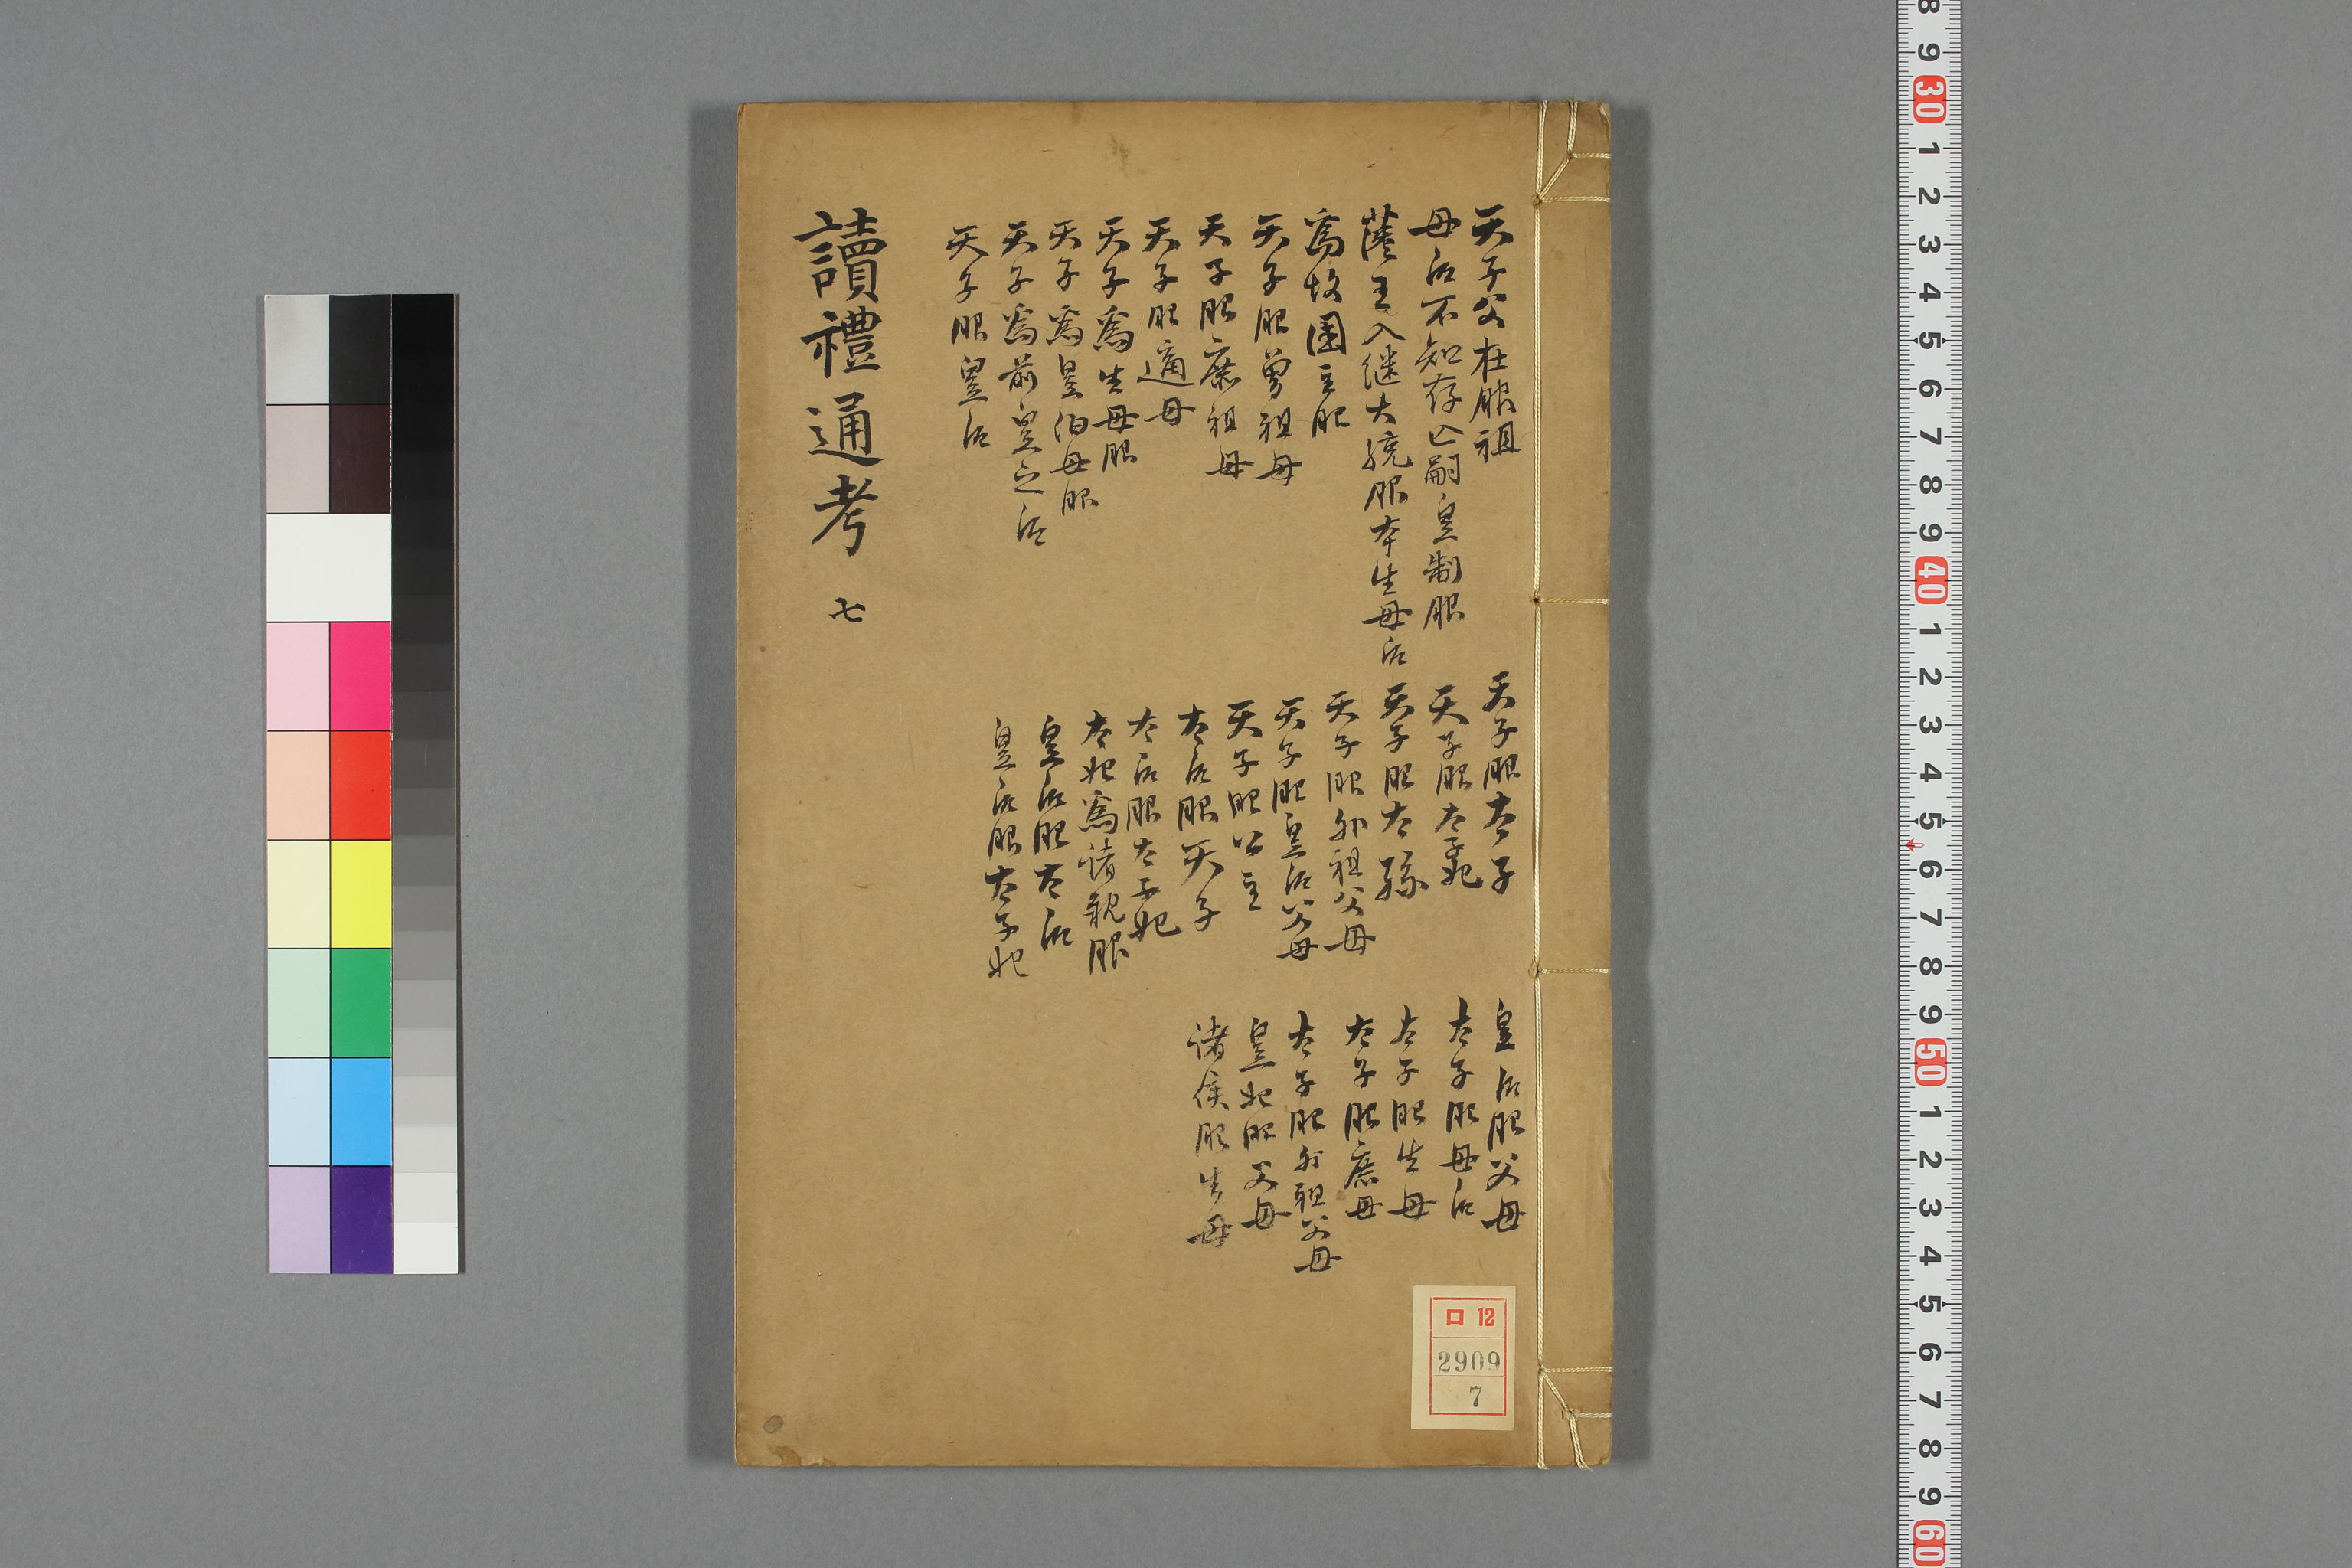 天子父在服祖
母后不知存亡嗣皇制服
藩王入繼大統服本生母后
爲故國主服
天子服曾祖母
天子服庶祖母
天子服適母
天子爲生母服
天子爲皇伯母服
天子爲前皇之后
天子服皇后
天子服太子
天子服太子妃
天子服太孫
天子服外祖父母
天子服皇后父母
天子服公主
太后服天子
太后服太子妃
太妃爲諸親服
皇后服太后
皇后服太子妃
皇后服父母
太子服母后
太子服生母
太子服庶母
太子服外祖父母
皇妃服父母
諸侯服生母
讀禮通考 七
ロ 12
2909
7
8 9 30 1 2 3 4 5 6 7 8 9 40 1 2 3 4 5 6 7 8 9 50 1 2 3 4 5 6 7 8 9 60